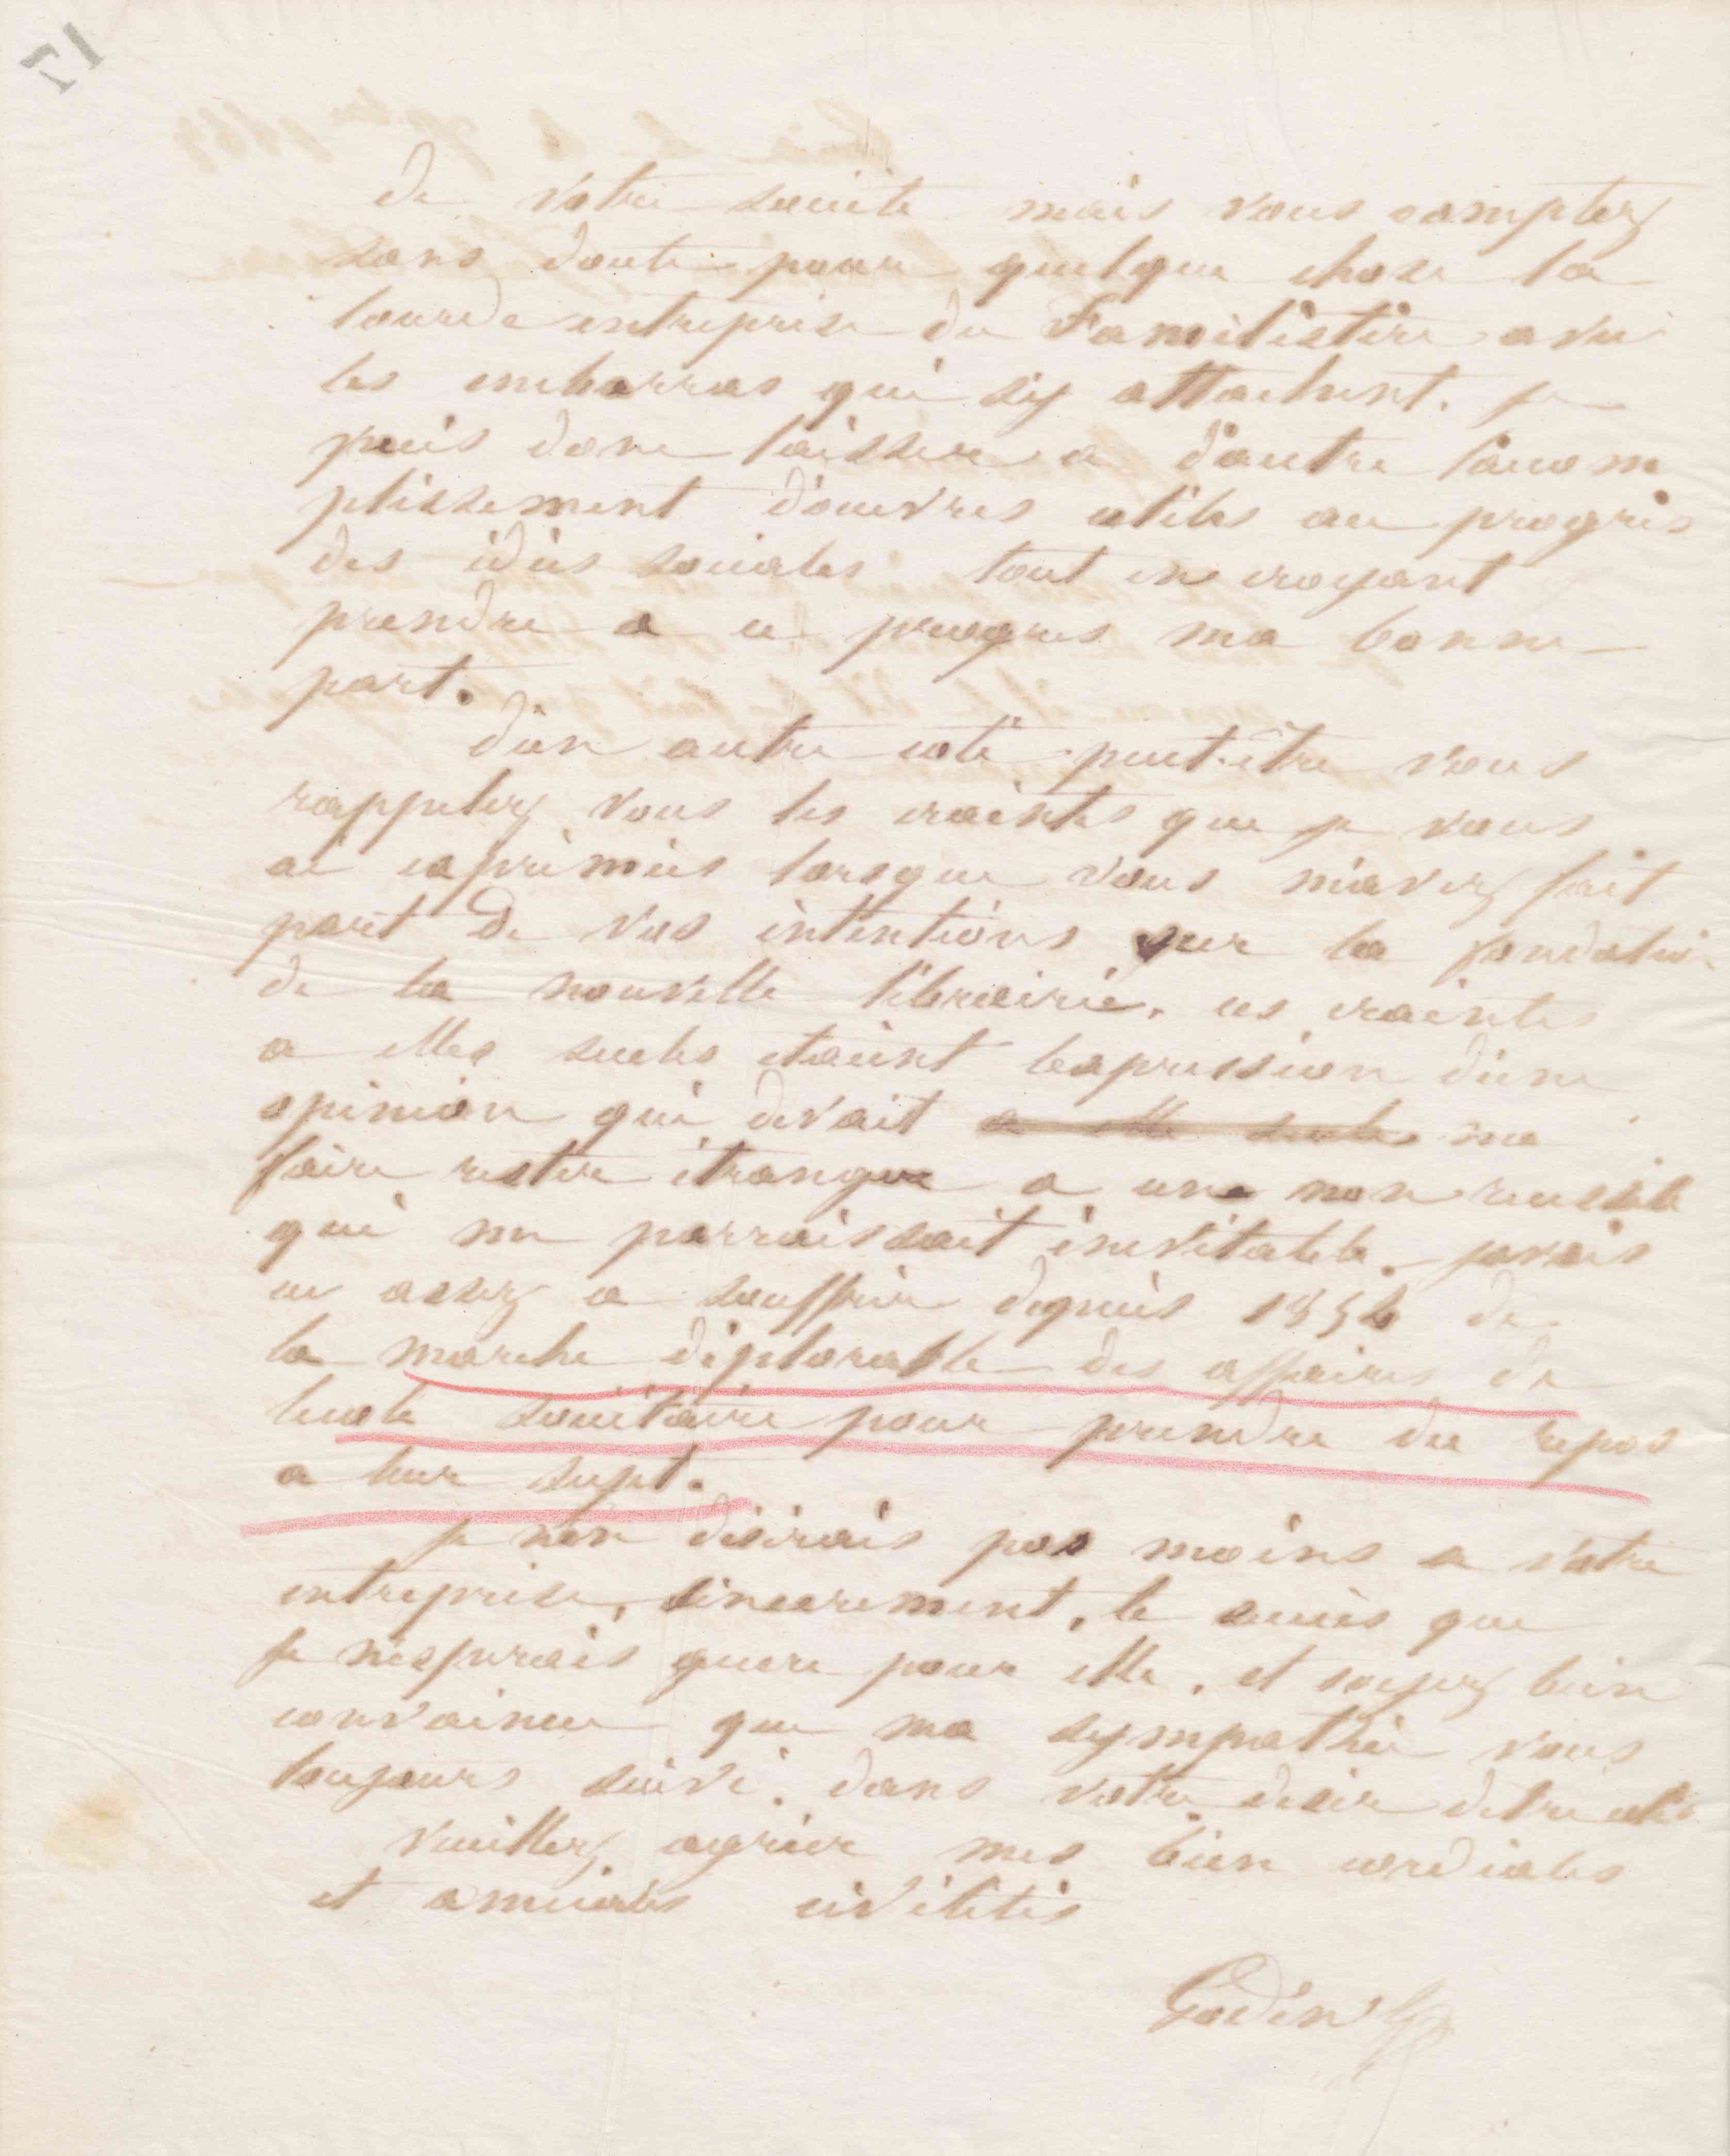 17
de votre société mais vous comptez
sans doute pour quelque chose la
lourde entreprise du Familistère avec
les embarras qui s'y attachent. je
puis donc laisser a d'autre l'accom
plissement d'œuvres utiles au progrès
des idées sociales tout en croyant
prendre a ce progres ma bonne
part.
D'un autre coté peut-être vous
rappelez vous les craintes que je vous
ai exprimées lorsque vous m'avez fait
part de vos intentions sur la fondation
de la nouvelle librairie. ces craintes
a elles seules etaient l'expression d'une
opinion qui devait a elle seule me
faire rester étranger a une non reussite
qui me parraissait inevitable. javais
eu assez a souffrir depuis 1854 de
la marche déplorable des affaires de
lecole sociétaire pour prendre du repos
a leur sujet.
je nen désirais pas moins a votre
entreprise, sincerement, le succès que
je n'espérais guere pour elle, et soyez bien
convaincu que ma sympathie vous
toujours suivi. dans votre desir detre utile
Veuillez agréer mes bien cordiales
et amicales civilités
Godin